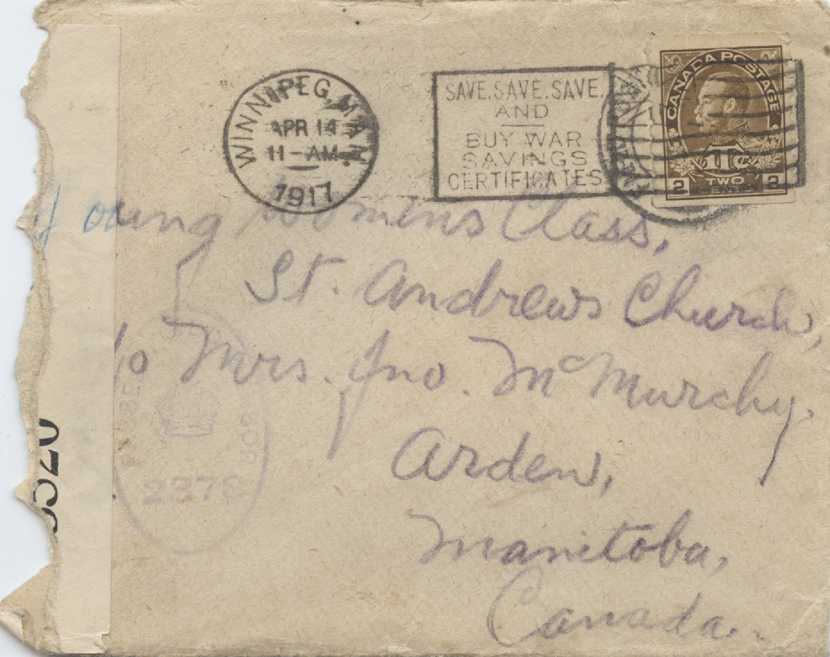 WINNIPEG, MAN.
APR 14
11-AM
1917
SAVE. SAVE. SAVE.
AND
BUY WAR
SAVINGS
CERTIFICATES
CANADA POSTAGE
1Tc
2 TWO CENTS 2
Young Womens Class,
St. Andrews Church,
c/o Mrs. Jno. McMurchy.
Arden,
Manitoba,
Canada.
PASSED CENSOR
2873